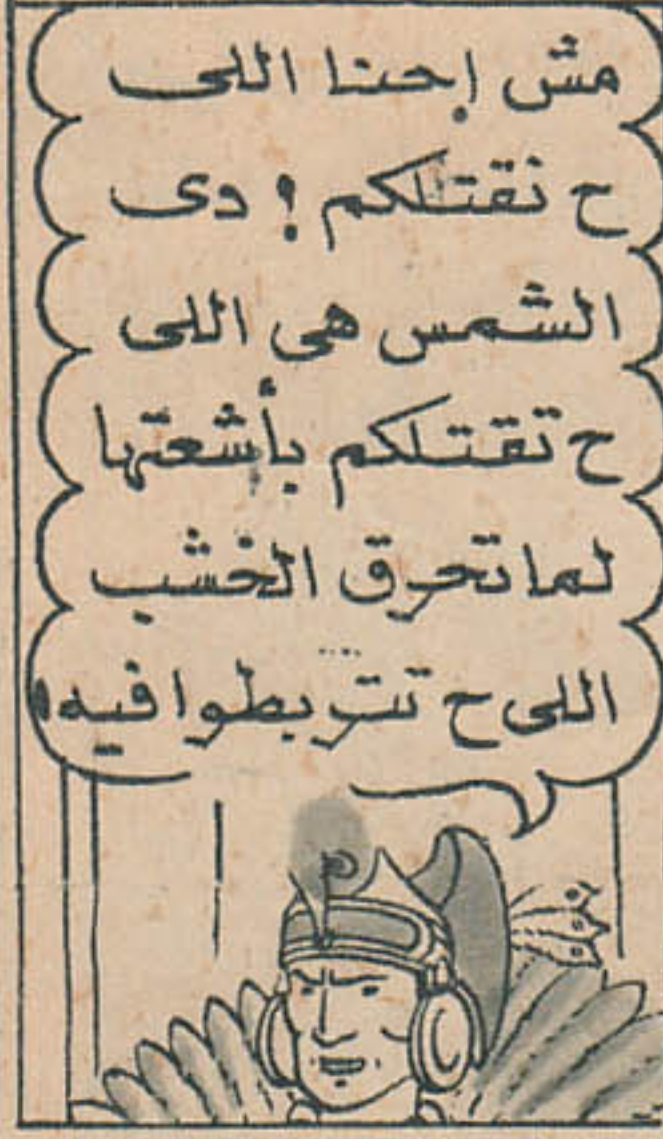 مش إحنا اللى
ح نقتلكم ! دى
الشمس هى اللى
ح تقتلكم بأشعتها
لما تحرق الخشب
اللى ح تتربطوا فيه!